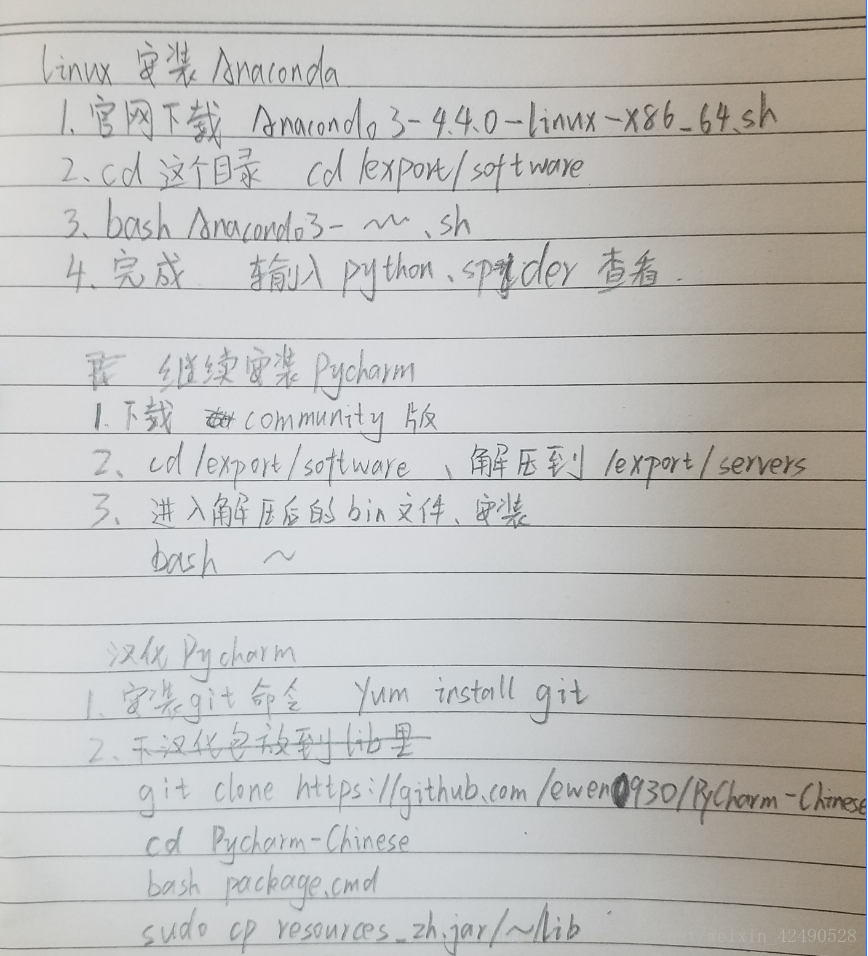 linux 安装 Anaconda
1. 官网下载 Anaconda3-4.4.0-linux-x86_64.sh
2. cd 这个目录 cd /export/software
3. bash Anaconda3- ~~ .sh
4. 完成 输入 python、spyder 查看.
继续安装 Pycharm
1. 下载 community 版
2、cd /export/software 、解压到 /export/servers
3、进入解压后的 bin 文件、安装
bash ~
汉化 Pycharm
1. 安装 git 命令 Yum install git
2. 下汉化包放到 lib 里
git clone https://github.com/ewen0930/PyCharm-Chinese
cd Pycharm-Chinese
bash package.cmd
sudo cp resources_zh.jar/~/lib